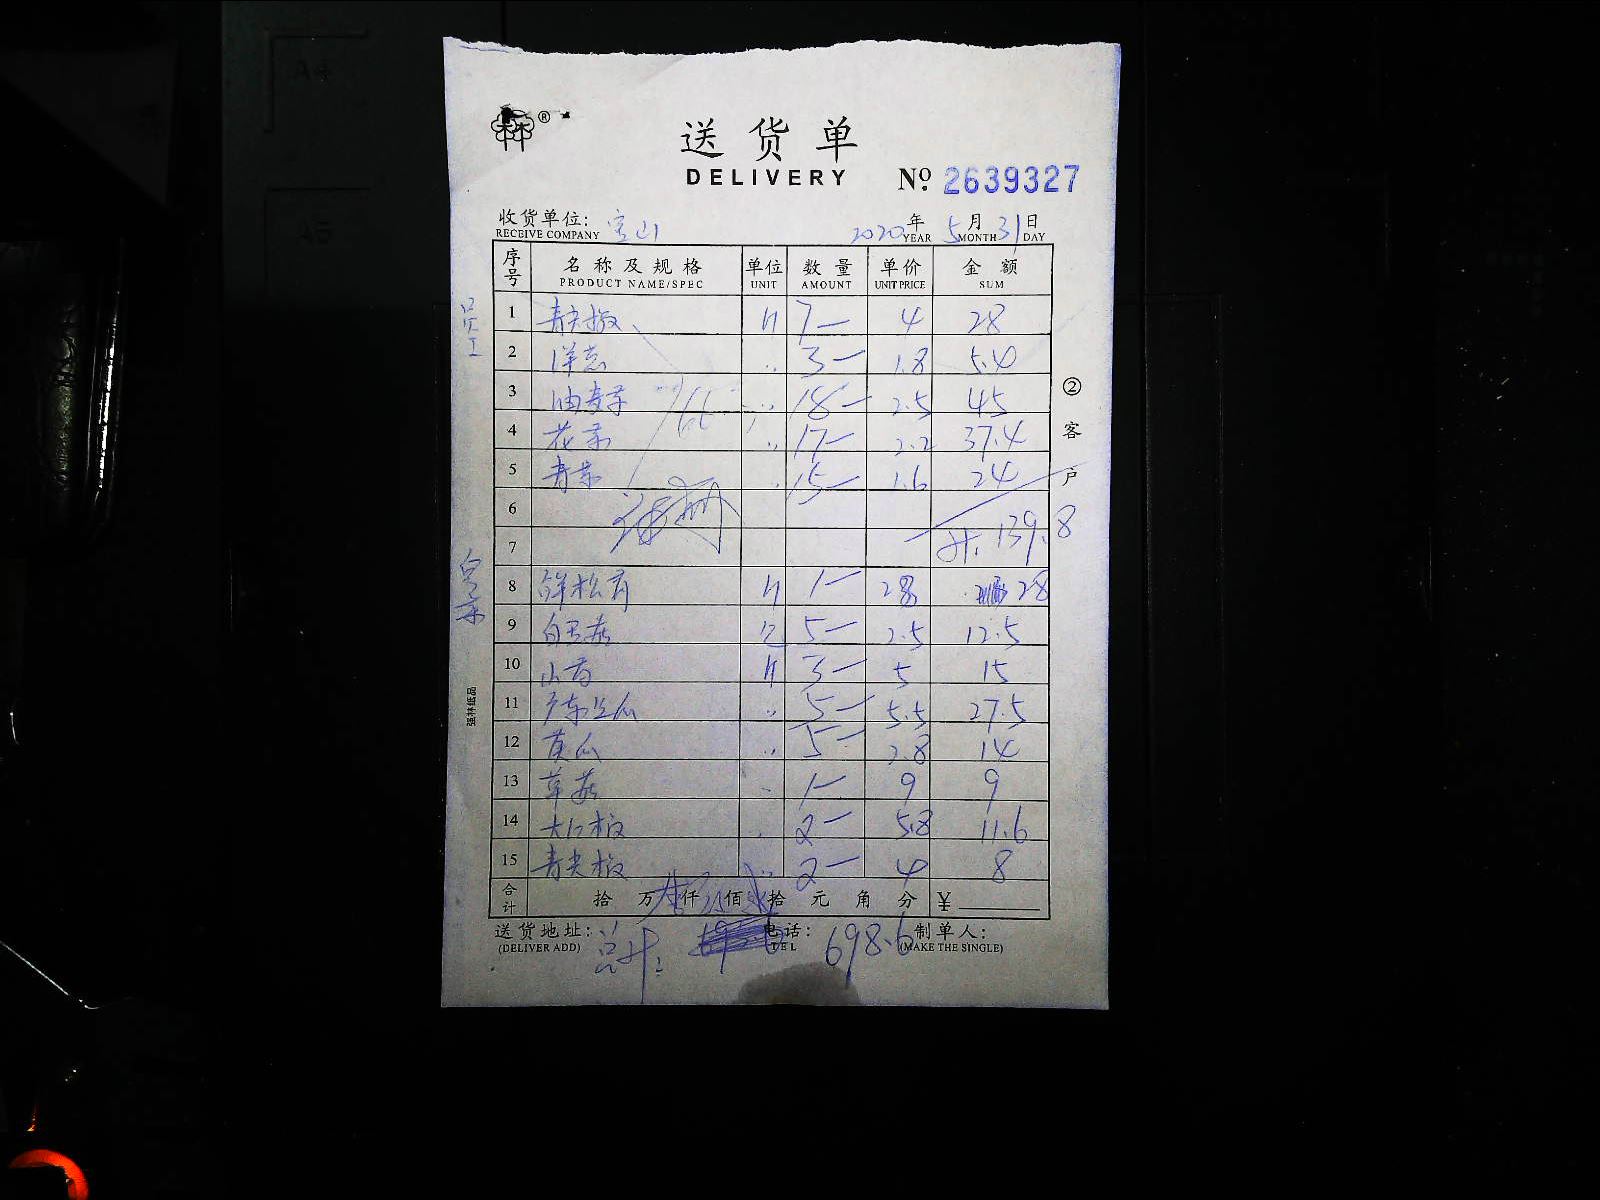 森®
送货单
DELIVERY
№ 2639327
收货单位: 宝山 2020年 5月 31日
RECEIVE COMPANY YEAR MONTH DAY
序号 名称及规格 单位 数量 单价 金额
PRODUCT NAME/SPEC UNIT AMOUNT UNIT PRICE SUM
1 青尖椒 斤 7 4 28
员工
2 洋葱 〃 3 1.8 5.4
3 油麦菜 〃 18 2.5 45
②客户
4 花菜 〃 17 2.2 37.4
5 青菜 〃 15 1.6 24
6
7 计. 139.8
8 鲜松茸 斤 1 28 28
9 白玉菇 包 5 2.5 12.5
10 山药 斤 3 5 15
11 广东丝瓜 〃 5 5.5 27.5
强林纸品
12 黄瓜 〃 5 2.8 14
13 草菇 〃 1 9 9
14 大红椒 〃 2 5.8 11.6
15 青尖椒 〃 2 4 8
合计 拾 万 仟 佰 拾 元 角 分 ¥
送货地址: 电话: 制单人:
(DELIVER ADD) TEL (MAKE THE SINGLE)
总计: 698.6